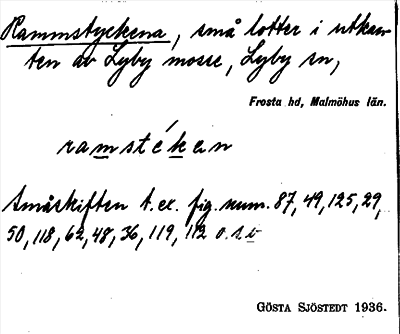 Rammstyckena, små lotter i utkan-
ten av Lyby mosse, Lyby sn,
Frosta hd, Malmöhus län.
ramstékan
Småskiften t. ex. fig. num. 87, 49, 125, 29,
50, 118, 62, 48, 36, 119, 112 o.s.v
GÖSTA SJÖSTEDT 1936.